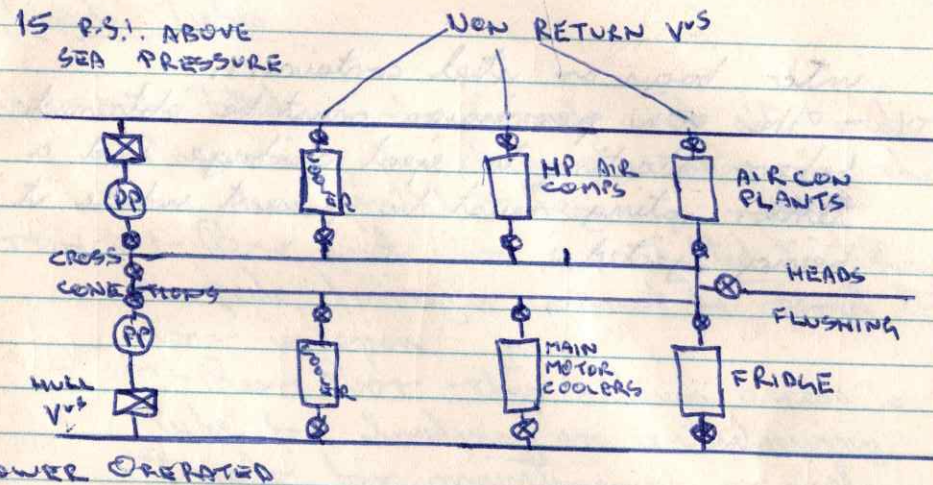 15 P.S.I. ABOVE
SEA PRESSURE
NON RETURN Vvs
PP
COOLER
HP AIR
COMPS
AIR CON
PLANTS
CROSS
CONECTIONS
HEADS
FLUSHING
PP
HULL
Vvs
COOLER
MAIN
MOTOR
COOLERS
FRIDGE
OWER OPERATED